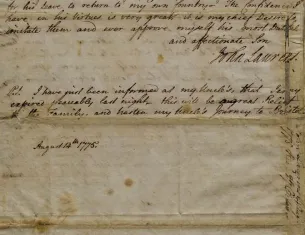 for his leave, to return to my own Country. The Confidence I
have in his Virtues is very great it is my chief Desire to
imitate them and ever approve myself his most dutiful
and affectionate Son
John Laurens.
I have just been informed at my Uncle's, that
expired peaceably last night, this will be a great Relief
to the Family, and hasten my Uncle's Journey to
August 14th 1775.